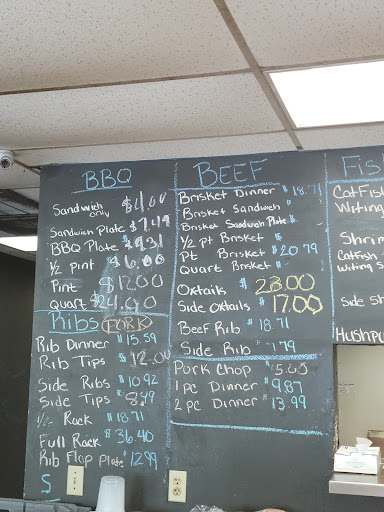 BBQ
Sandwich only $4.00
Sandwich Plate $7.49
BBQ Plate $9.31
1/2 pint $6.00
Pint $12.00
Quart $24.00
Ribs PORK
Rib Dinner $15.59
Rib Tips $12.00
Side Ribs $10.92
Side Tips $8.49
1/2 Rack $18.71
Full Rack $36.40
Rib Flap Plate $12.99
S
BEEF
Brisket Dinner $18.71
Brisket Sandwich $
Brisket Sandwich Plate $
1/2 pt Brisket $
Pt Brisket $20.79
Quart Brisket $
Oxtails $23.00
Side Oxtails $17.00
Beef Rib $18.71
Side Rib $1.79
Pork Chop $5.63
1 pc Dinner $9.87
2 pc Dinner $13.99
Fis
CatFish
Shrim
Catfish
Side Sh
Hushpu